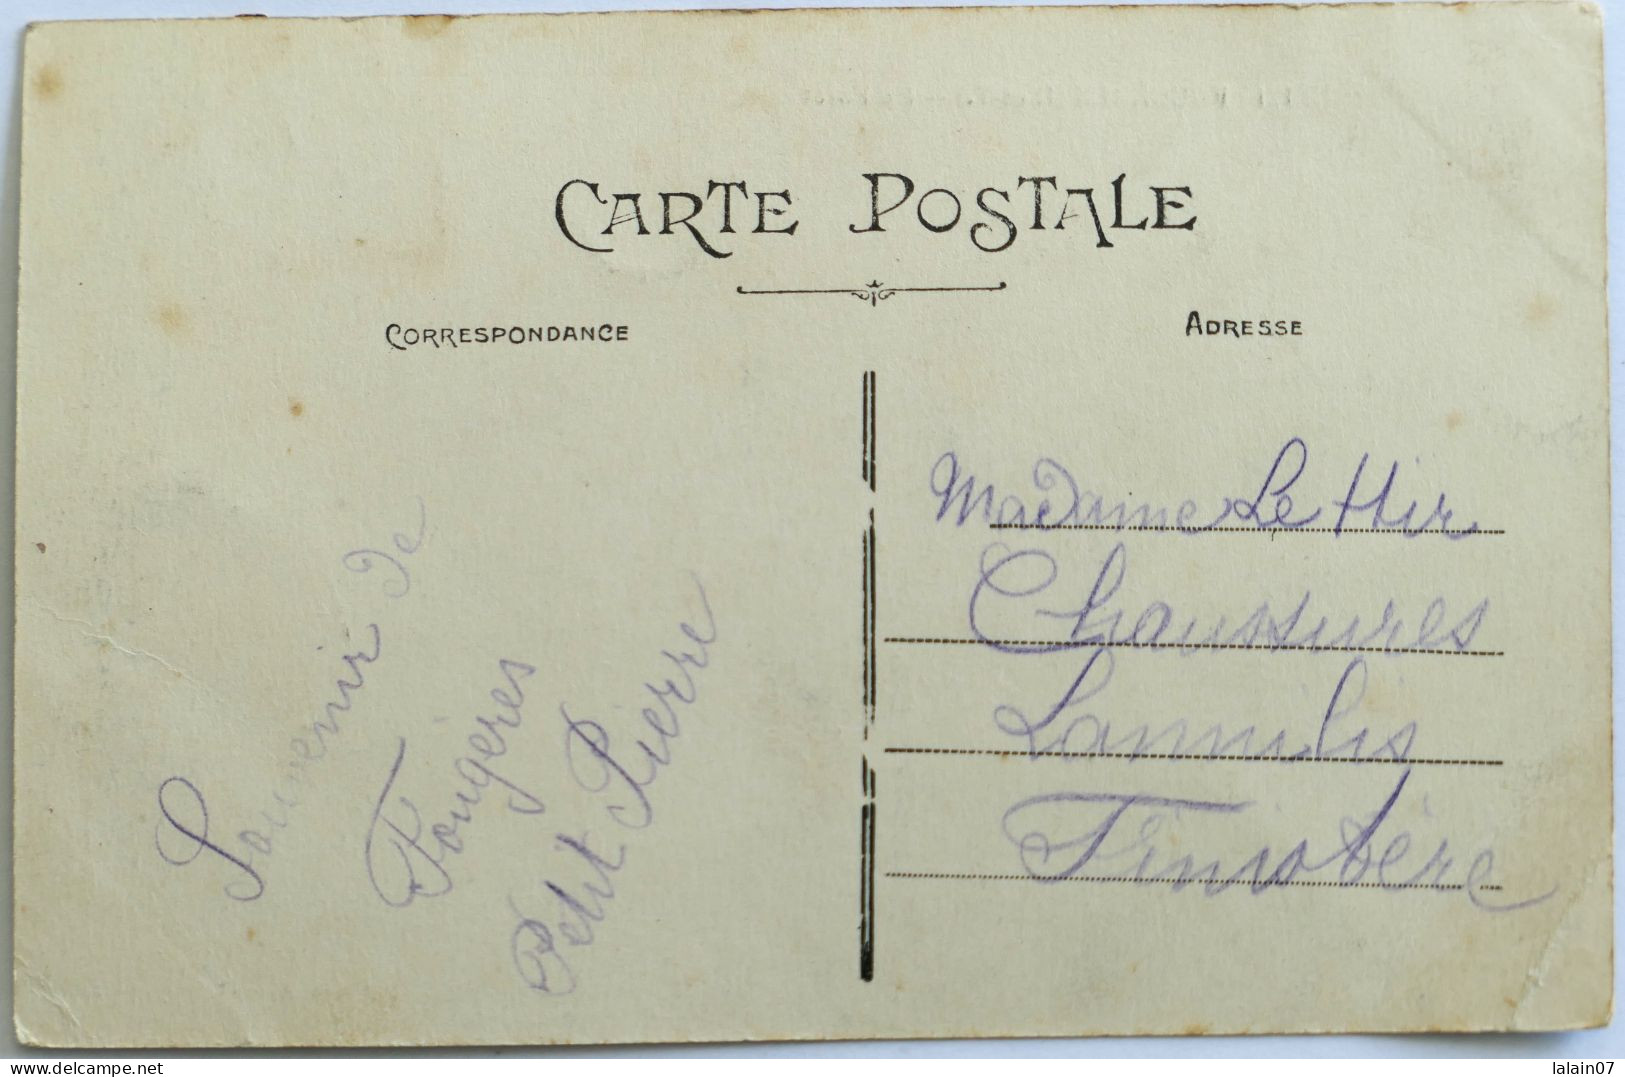 CARTE POSTALE
CORRESPONDANCE
ADRESSE
Souvenir de
Fougères
Petit Pierre
Madame Le Hir
Chaussures
Lannilis
Finistère
delcampe.net
lalain07